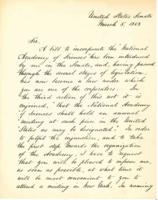 United States Senate
March 5, 1863
Sir,
A bill to incorporate the National
Academy of Sciences has been introduced
by me in this Senate, and, having passed
through the usual stages of legislation,
has now become a law under which
you are one of the corporators. In
the third section of this act it is
required, "that the National Academy
of Sciences shall hold an annual
meeting at such place in the United
States as may be designated." In order
to fulfil the requisition, and to take
the first step towards the organization
of the Academy, I have to request
that you will be pleased to inform me,
as soon as possible, at what time it
will be most convenient to you to
attend a meeting in New York. In naming